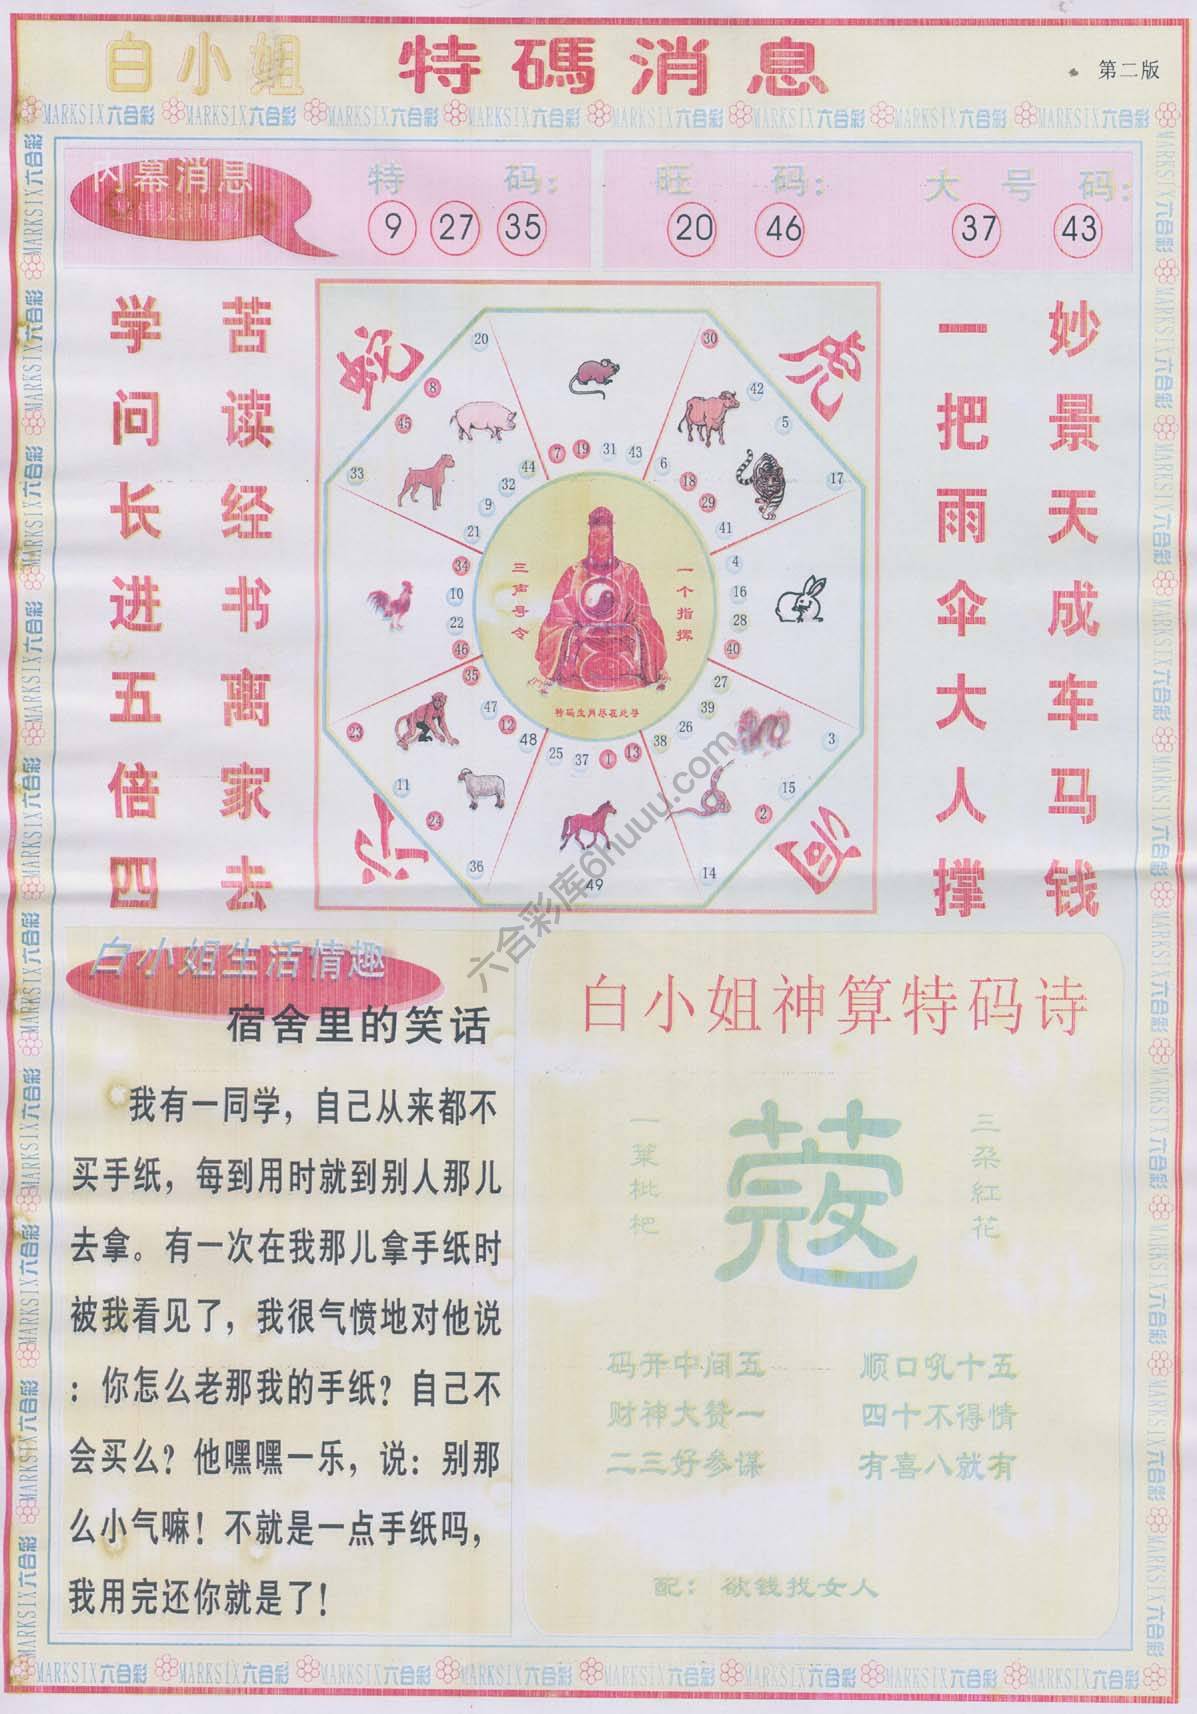 白小姐 特碼消息
第二版
MARKSIX六合彩 MARKSIX六合彩 MARKSIX六合彩 MARKSIX六合彩 MARKSIX六合彩 MARKSIX六合彩 MARKSIX六合彩 MARKSIX六合彩
内幕消息
特 码:
9 27 35
旺 码:
20 46
大 号 码:
37 43
学问长进五倍四
苦读经书离家去
一把雨伞大人撑
妙景天成车马钱
蛇
虎
20
30
8
42
45
5
33
17
7 19 31 43
44
6
32
18
9
29
21
41
34
4
10
16
22
28
46
40
35
27
47
39
12
26
48
38
25 37 1 13
23
3
11
15
24
2
36
14
49
三声寻令
一个指挥
特码生肖尽在此寻
六合彩库6huuu.com
白小姐生活情趣
宿舍里的笑话
我有一同学，自己从来都不
买手纸，每到用时就到别人那儿
去拿。有一次在我那儿拿手纸时
被我看见了，我很气愤地对他说
：你怎么老那我的手纸？自己不
会买么？他嘿嘿一乐，说：别那
么小气嘛！不就是一点手纸吗，
我用完还你就是了！
白小姐神算特码诗
一葉枇杷
蔻
三朶紅花
码开中间五 顺口吼十五
财神大赞一 四十不得情
二三好参谋 有喜八就有
配：欲钱找女人
MARKSIX六合彩 MARKSIX六合彩 MARKSIX六合彩 MARKSIX六合彩 MARKSIX六合彩 MARKSIX六合彩 MARKSIX六合彩 MARKSIX六合彩